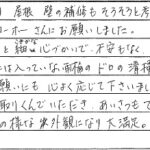 屋根 壁の補修もそろそろと考
ーオーさんにお願いしました。
と細かな心づかいで、不安もなく
には入っていない雨樋のドロの清掃
願いにも心よく応じて下さいまし
くんでいただき、あいさつもて
の様な家外観になり大満足。